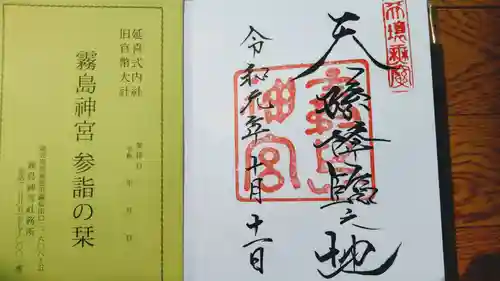 天孫降臨之地
霧島神宮
令和元年十月十一日
延喜式内社
旧官幣大社
霧島神宮 参詣の栞
参拝日
令和 年 月 日
霧島神宮社務所